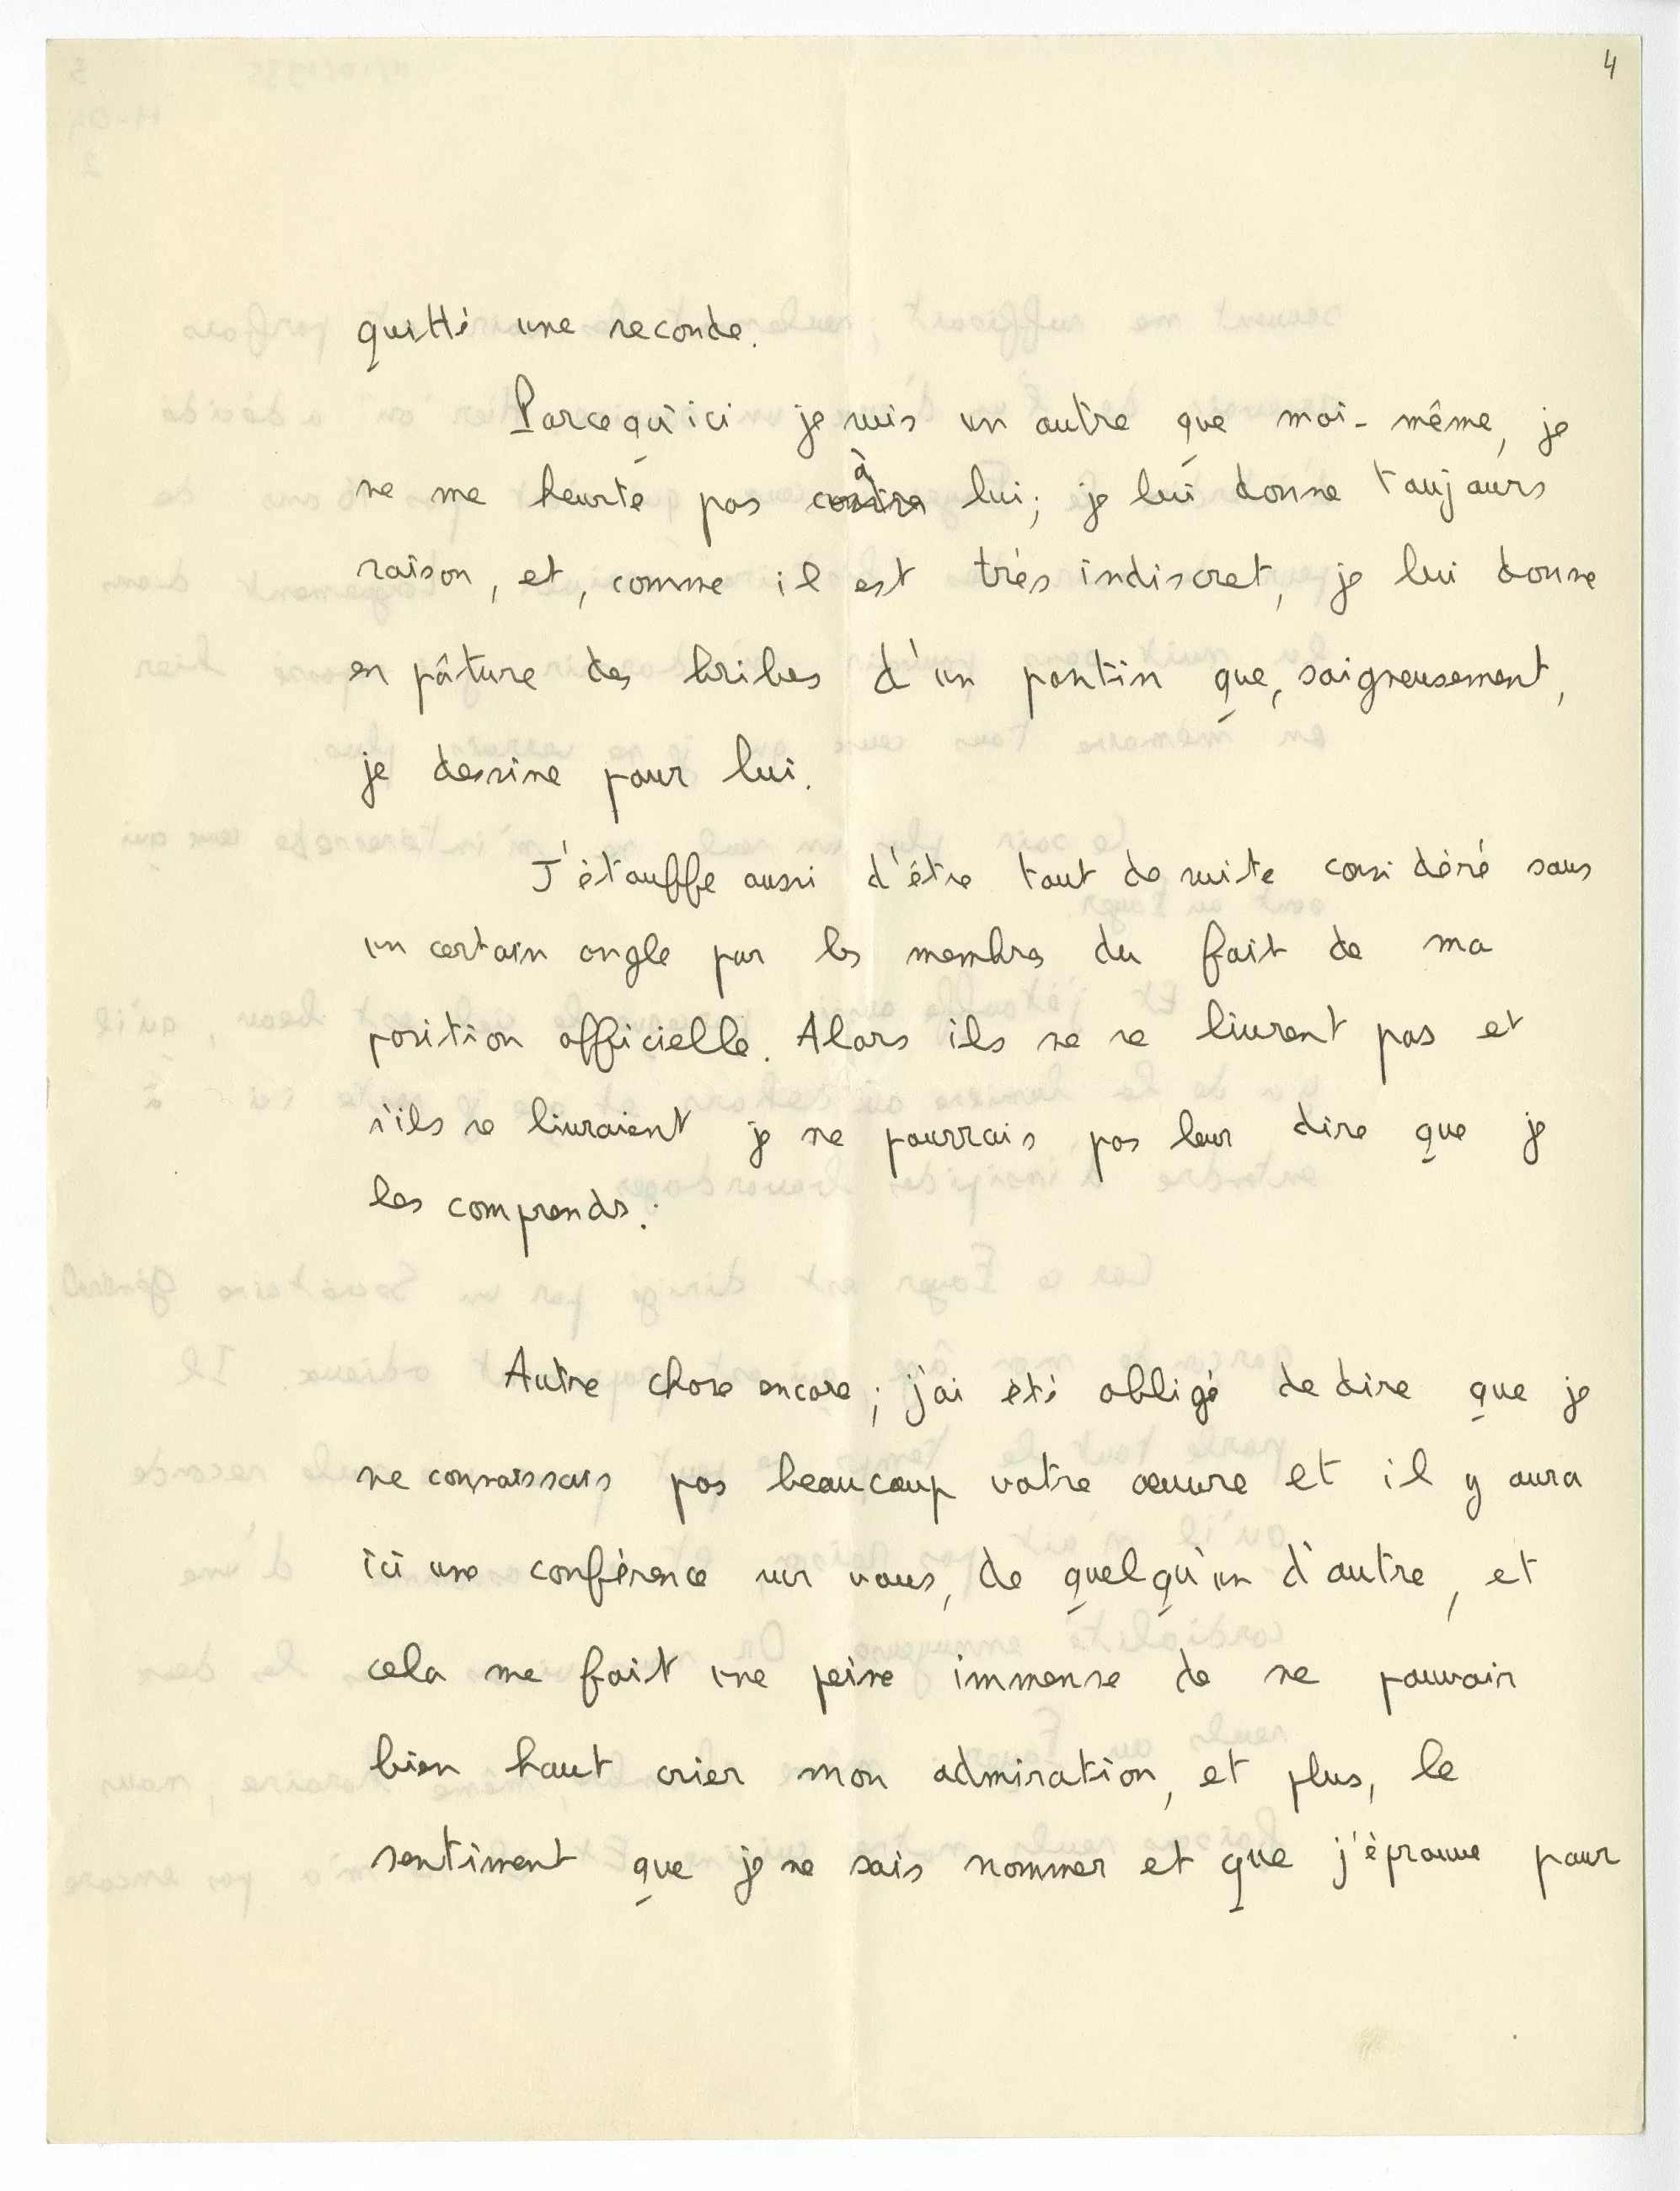 4
quitté une seconde.
Parcequ'ici je suis un autre que moi-même, je
ne me heurte pas à lui; je lui donne toujours
raison, et, comme il est très indiscret, je lui donne
en pâture des bribes d'un pantin que, soigneusement,
je dessine pour lui.
J'étouffe aussi d'être tout de suite considéré sous
un certain angle par les membres du fait de ma
position officielle. Alors ils ne se livrent pas et
s'ils se livraient je ne pourrais pas leur dire que je
les comprends.
Autre chose encore; j'ai été obligé de dire que je
ne connaissais pas beaucoup votre œuvre et il y aura
ici une conférence sur vous, de quelqu'un d'autre, et
cela me fait une peine immense de ne pouvoir
bien haut crier mon admiration, et plus, le
sentiment que je ne sais nommer et que j'éprouve pour